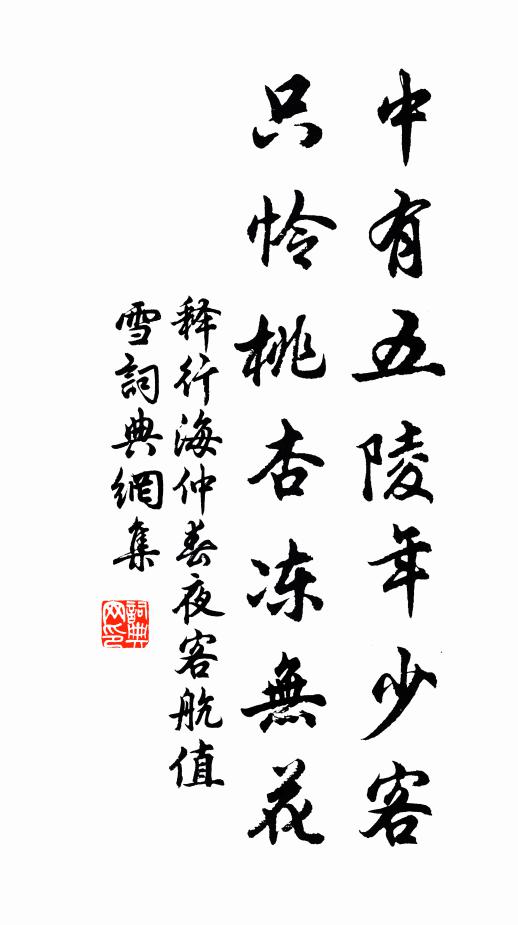 中有五陵年少客
只怜桃杏冻無花
释行海仲春夜客航值
雪詞典網集
詞典网印